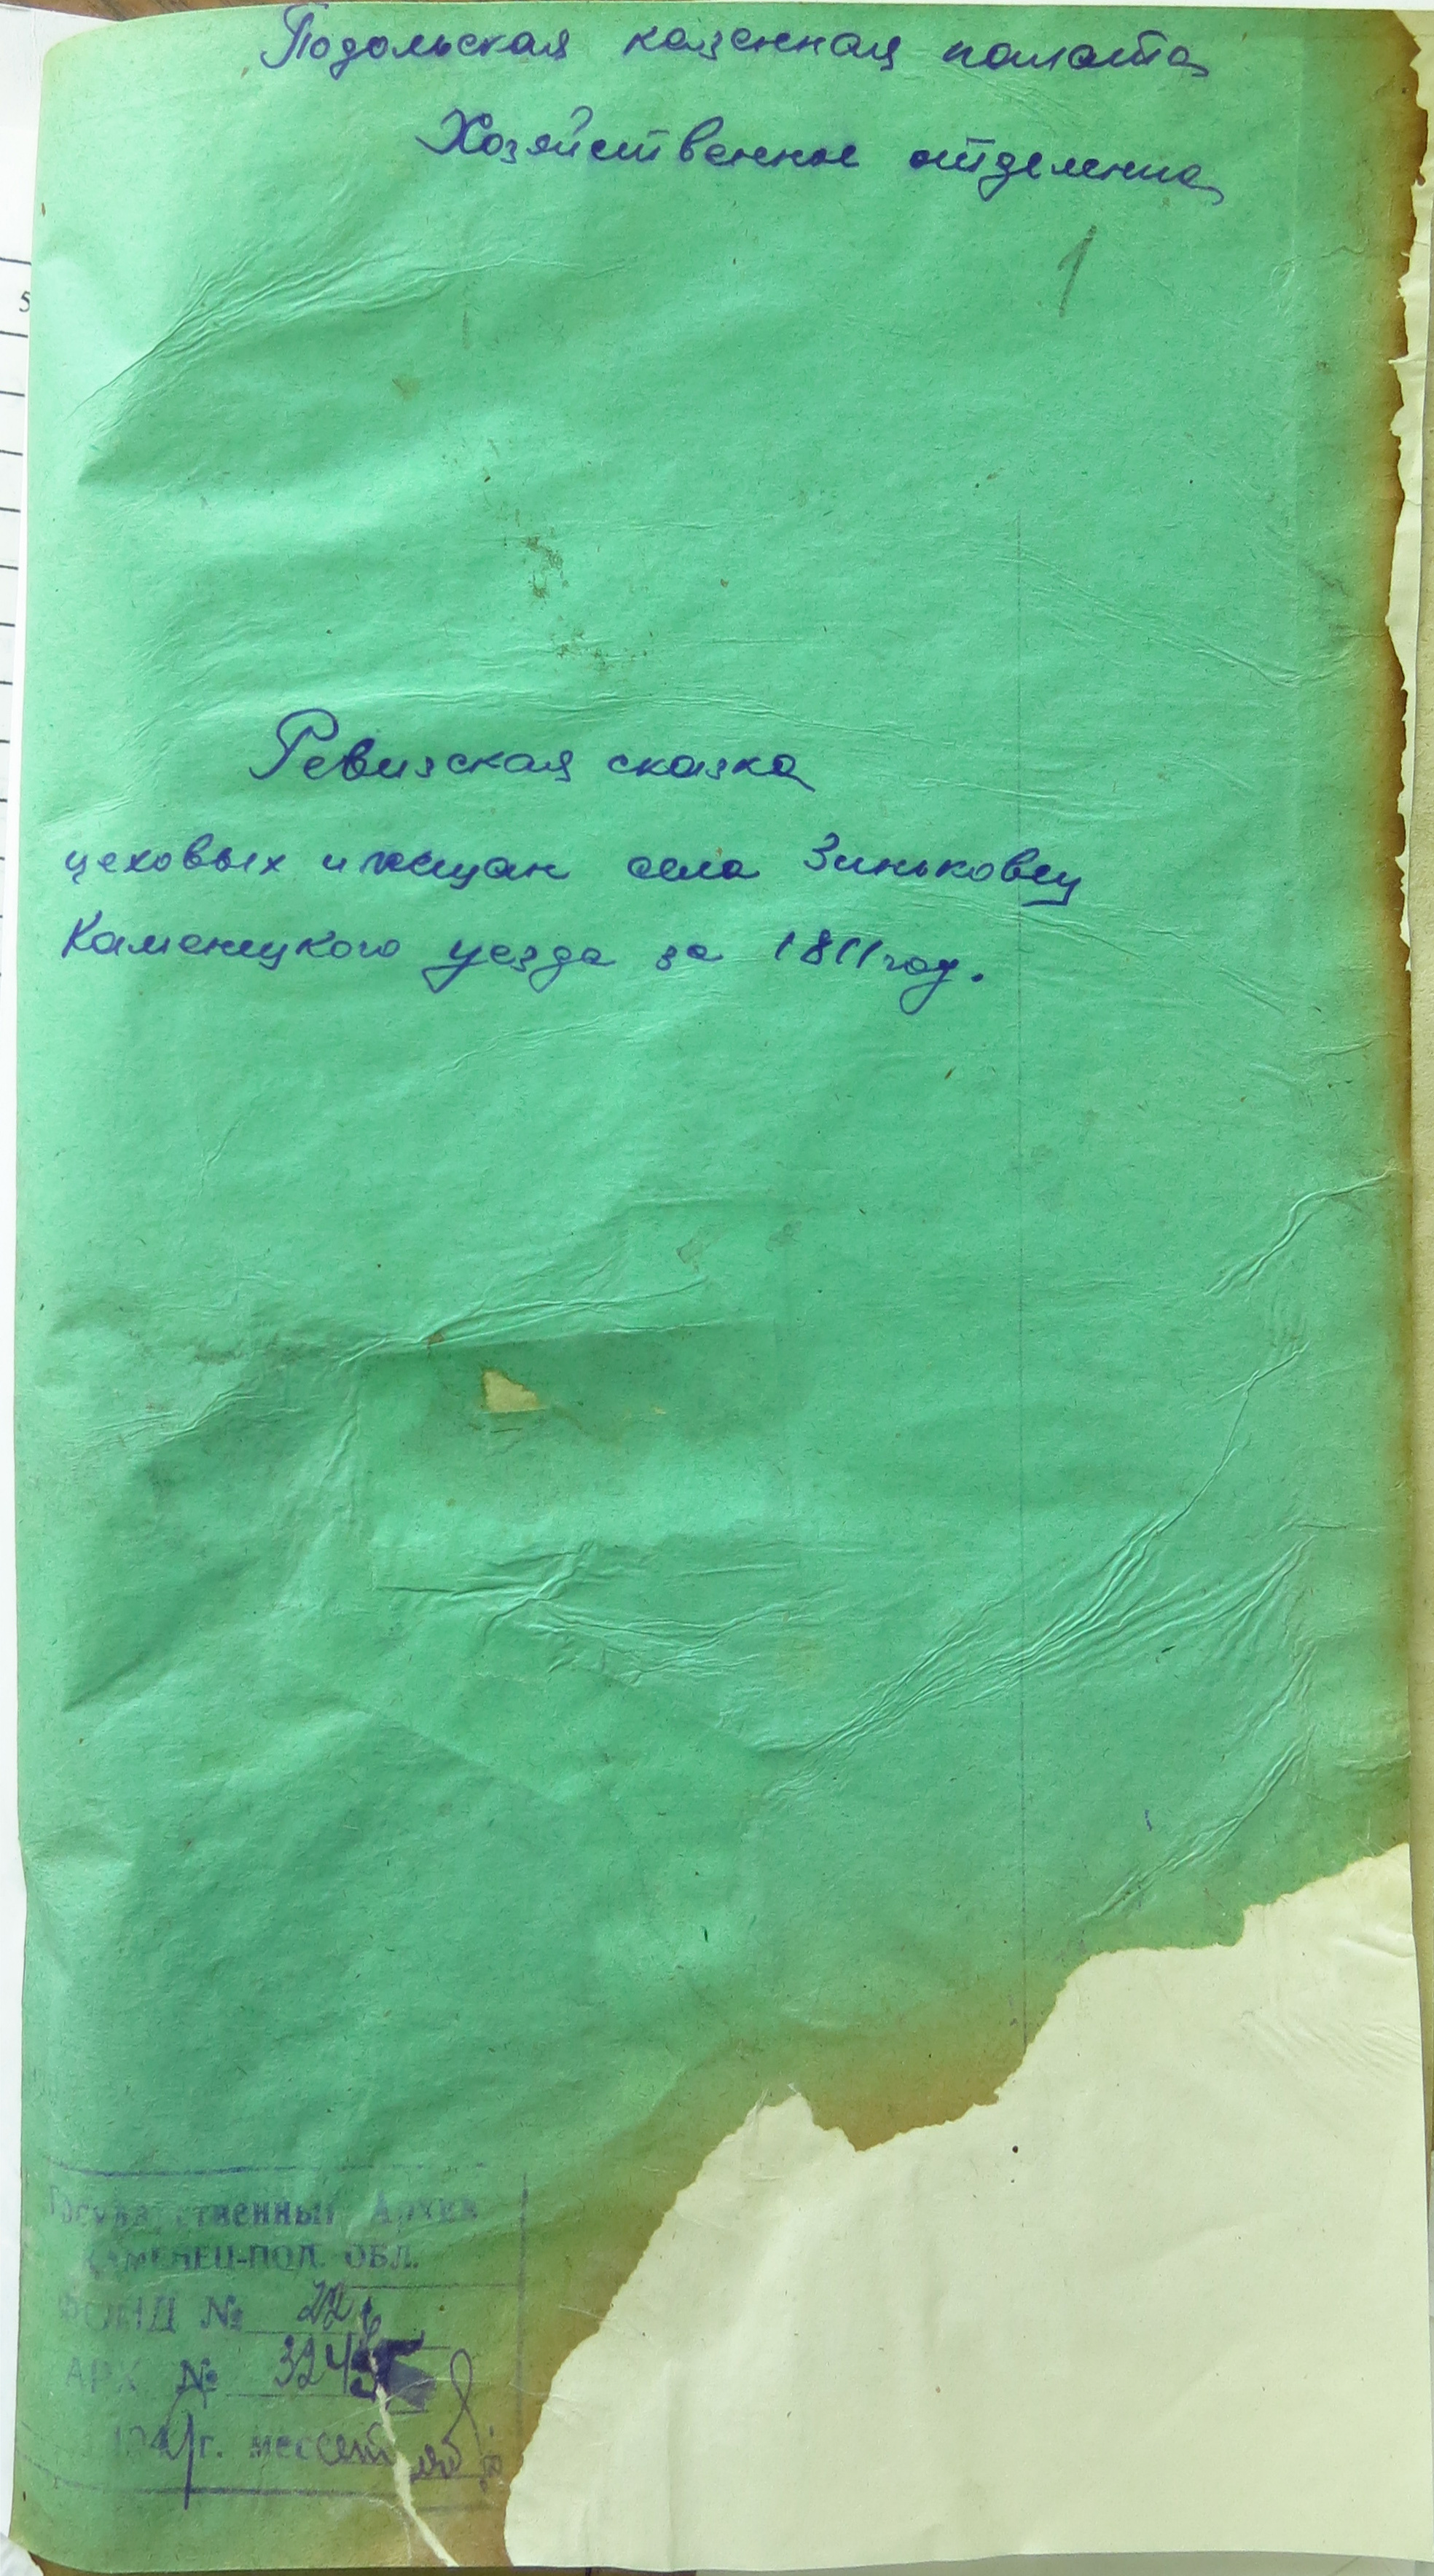 Подольская казенная палата
Хозяйственное отделение
1
Ревизская сказка
цеховых и мещан села Зиньковец
Каменецкого уезда за 1811 год.
Государственный Архив
КАМЕНЕЦ-ПОД. ОБЛ.
ФОНД № 226
АРХ №
1941г. мес
5